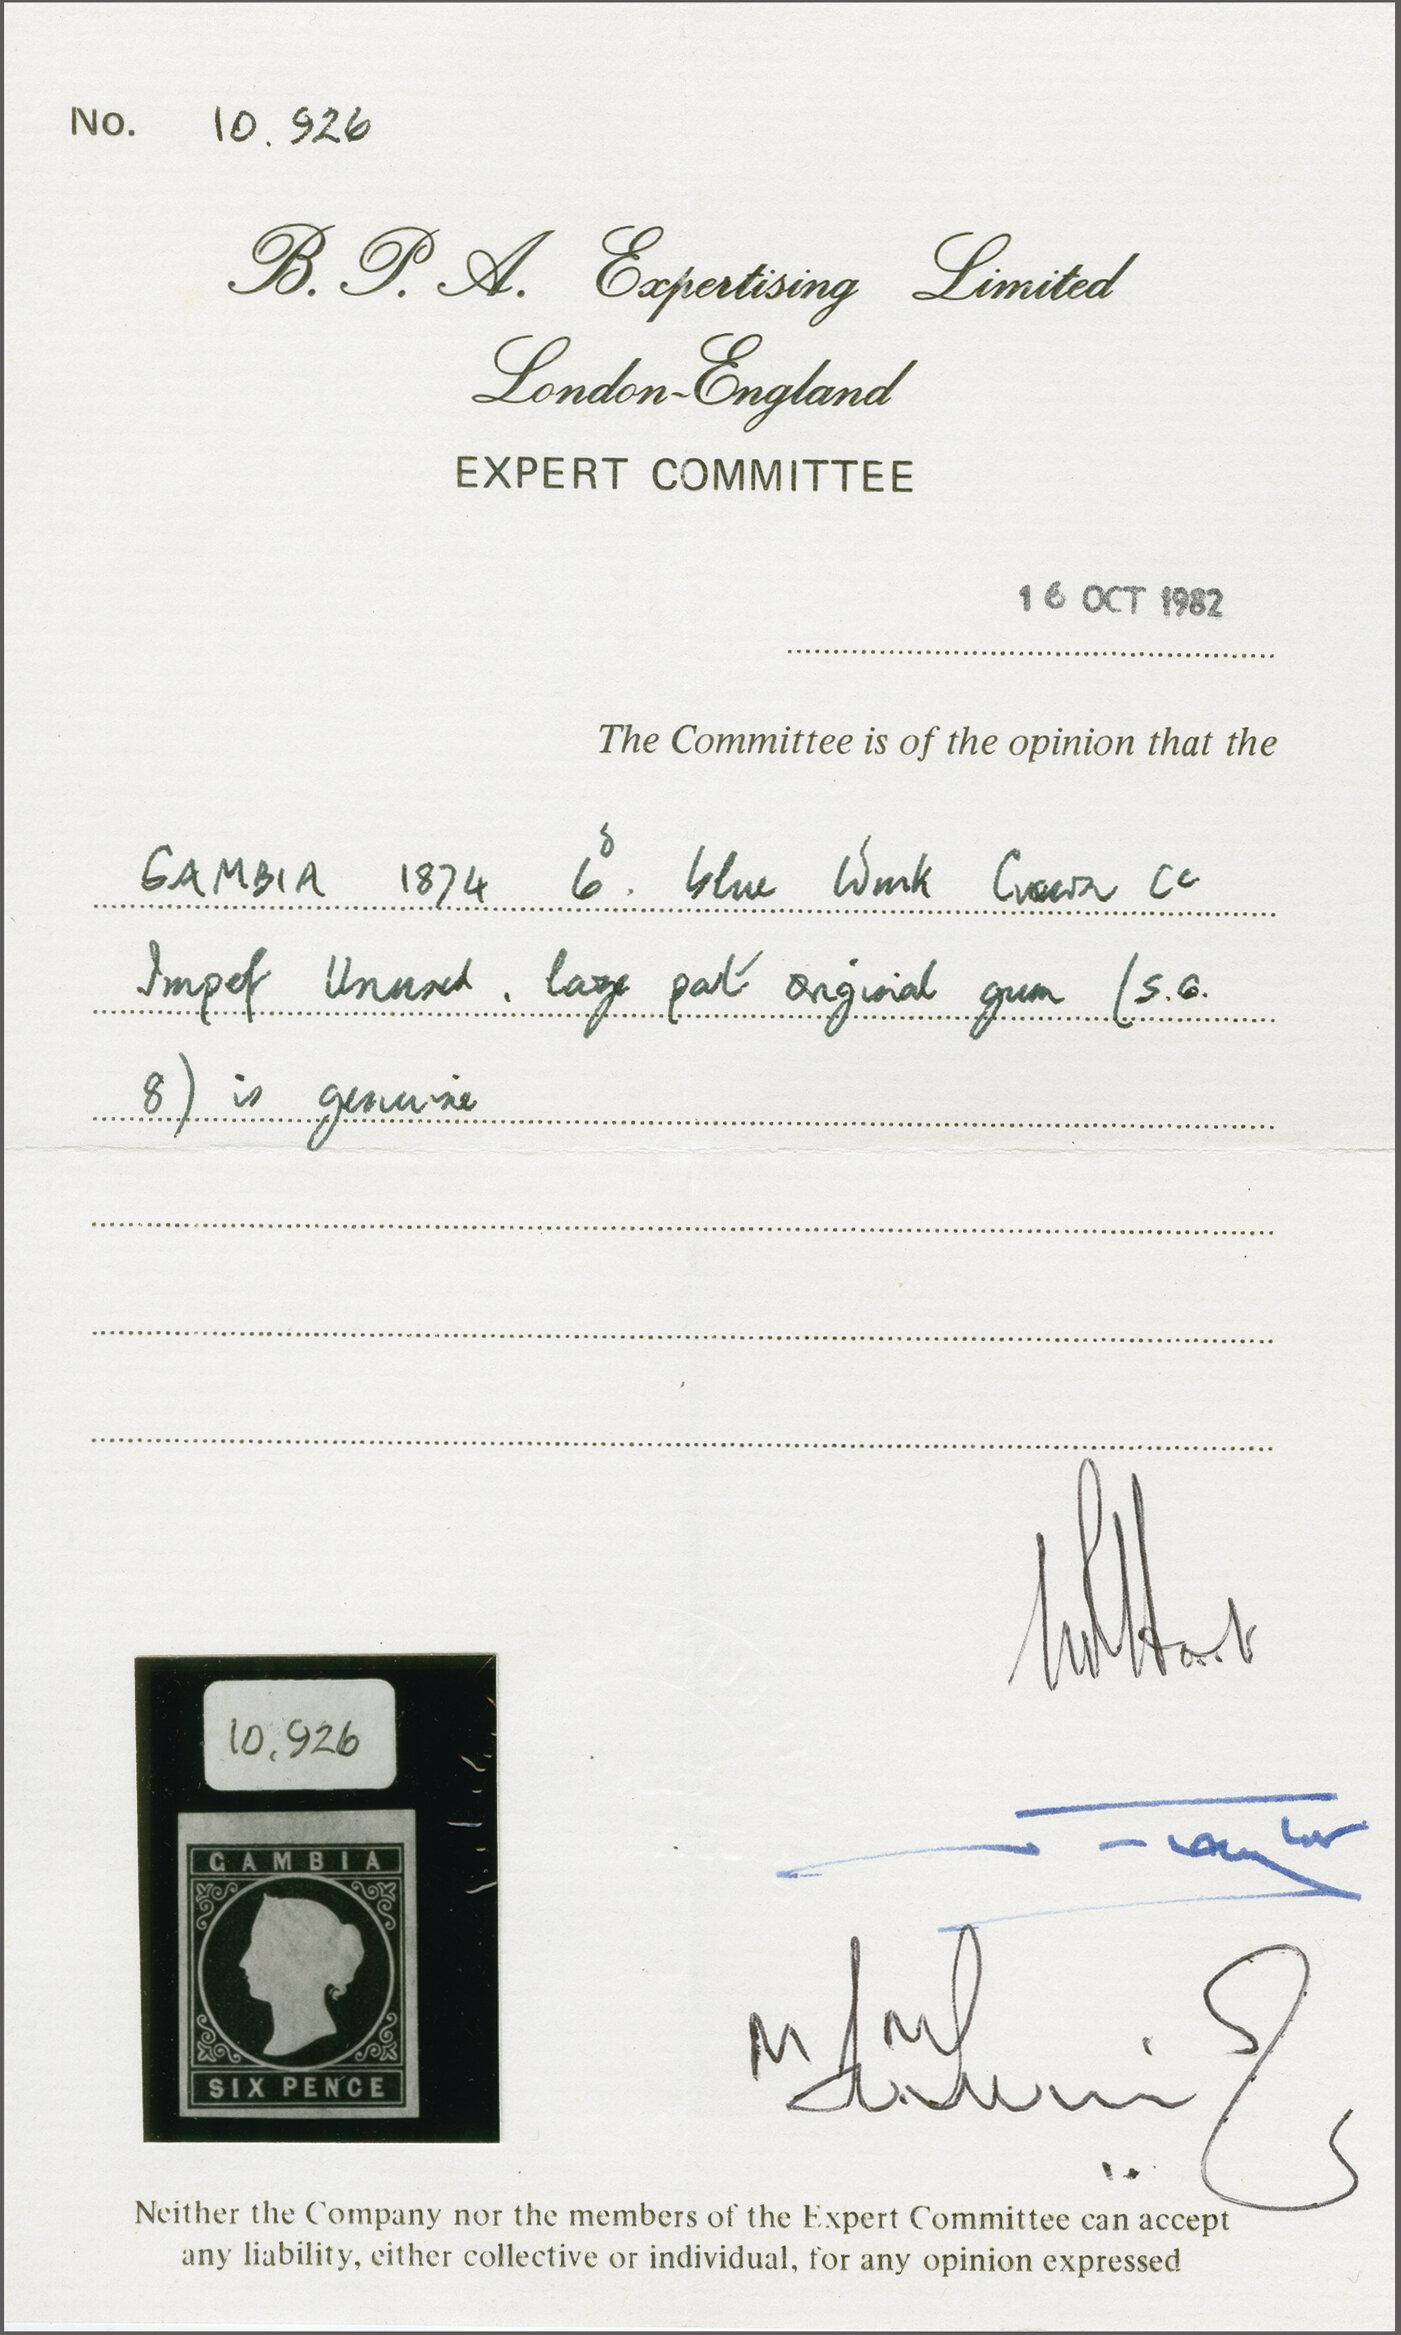 No. 10.926
B. P. A. Expertising Limited
London-England
EXPERT COMMITTEE
16 OCT 1982
The Committee is of the opinion that the
GAMBIA 1874 6d. blue Wmk Crown CC
Imperf Unused, large part original gum (S.G.
8) is genuine
10.926
GAMBIA
SIX PENCE
Neither the Company nor the members of the Expert Committee can accept
any liability, either collective or individual, for any opinion expressed